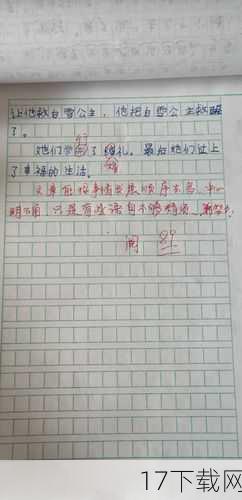 让他救白雪公主，他把白雪公主救醒
了。
行
他们举办了婚礼。最后他们过上
婚
了幸福的生活。
文章能按事情发展顺序来写，中心
明确，只是有些语句不够精炼。
阅
17下载网